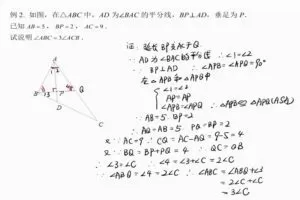 例2. 如图，在△ABC中，AD为∠BAC的平分线，BP⊥AD，垂足为P.
已知AB=5，BP=2，AC=9.
试说明∠ABC=3∠ACB.
证: 延长BP交AC于Q
∵AD为∠BAC的平分线 ∴∠1=∠2
∵BP⊥AD ∴∠APB=∠APQ=90°
在△APB和△APQ中
∠1=∠2
AP=AP
∠APB=∠APQ ∴△APB≌△APQ(ASA)
∵AB=5 BP=2
∴AQ=AB=5 PQ=BP=2
又∵AC=9 ∴CQ=AC-AQ=9-5=4
又∵BQ=BP+PQ=4 ∴QC=QB
∴∠3=∠C ∴∠4=∠3+∠C=2∠C
∴∠ABQ=∠4=2∠C ∴∠ABC=∠ABQ+∠3
=2∠C+∠C
=3∠C
A
1
2
B
3
P
4
Q
D
C